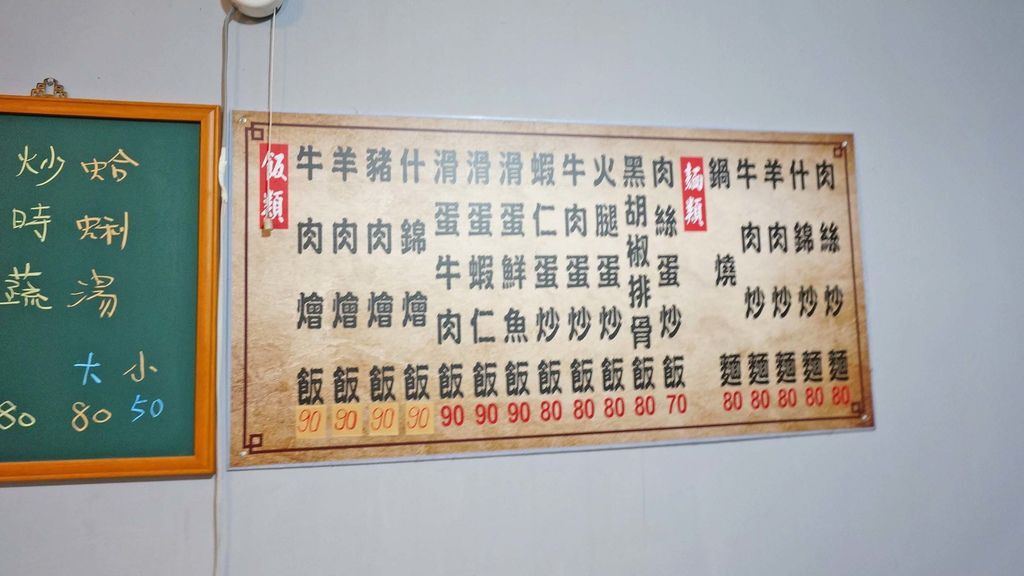 炒時蔬 80
蛤蜊湯
大 80
小 50
飯類
牛肉燴飯 90
羊肉燴飯 90
豬肉燴飯 90
什錦燴飯 90
滑蛋牛肉飯 90
滑蛋蝦仁飯 90
滑蛋鮮魚飯 90
蝦仁蛋炒飯 80
牛肉蛋炒飯 80
火腿蛋炒飯 80
黑胡椒排骨飯 80
肉絲蛋炒飯 70
麵類
鍋燒麵 80
牛肉炒麵 80
羊肉炒麵 80
什錦炒麵 80
肉絲炒麵 80